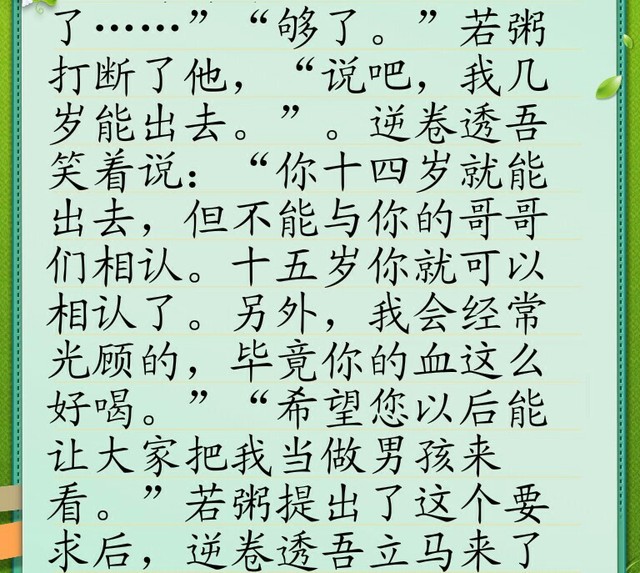 了……”“够了。”若粥
打断了他，“说吧，我几
岁能出去。”。逆卷透吾
笑着说：“你十四岁就能
出去，但不能与你的哥哥
们相认。十五岁你就可以
相认了。另外，我会经常
光顾的，毕竟你的血这么
好喝。”“希望您以后能
让大家把我当做男孩来
看。”若粥提出了这个要
求后，逆卷透吾立马来了